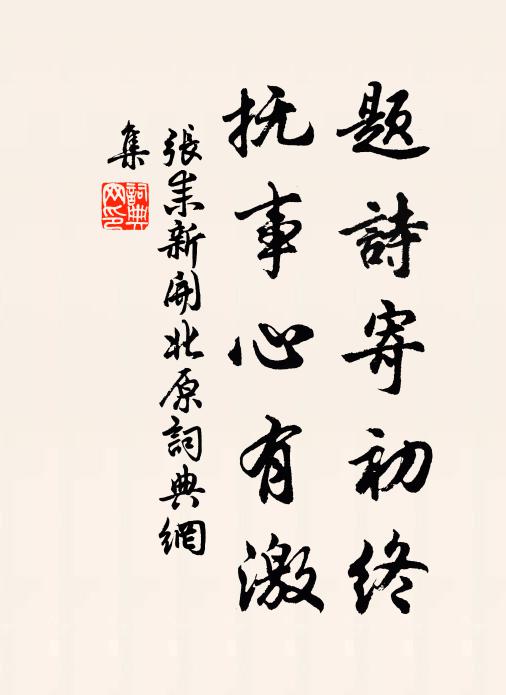 題詩寄初終
抚事心有激
張耒新開北原詞典網
集
詞典
网印